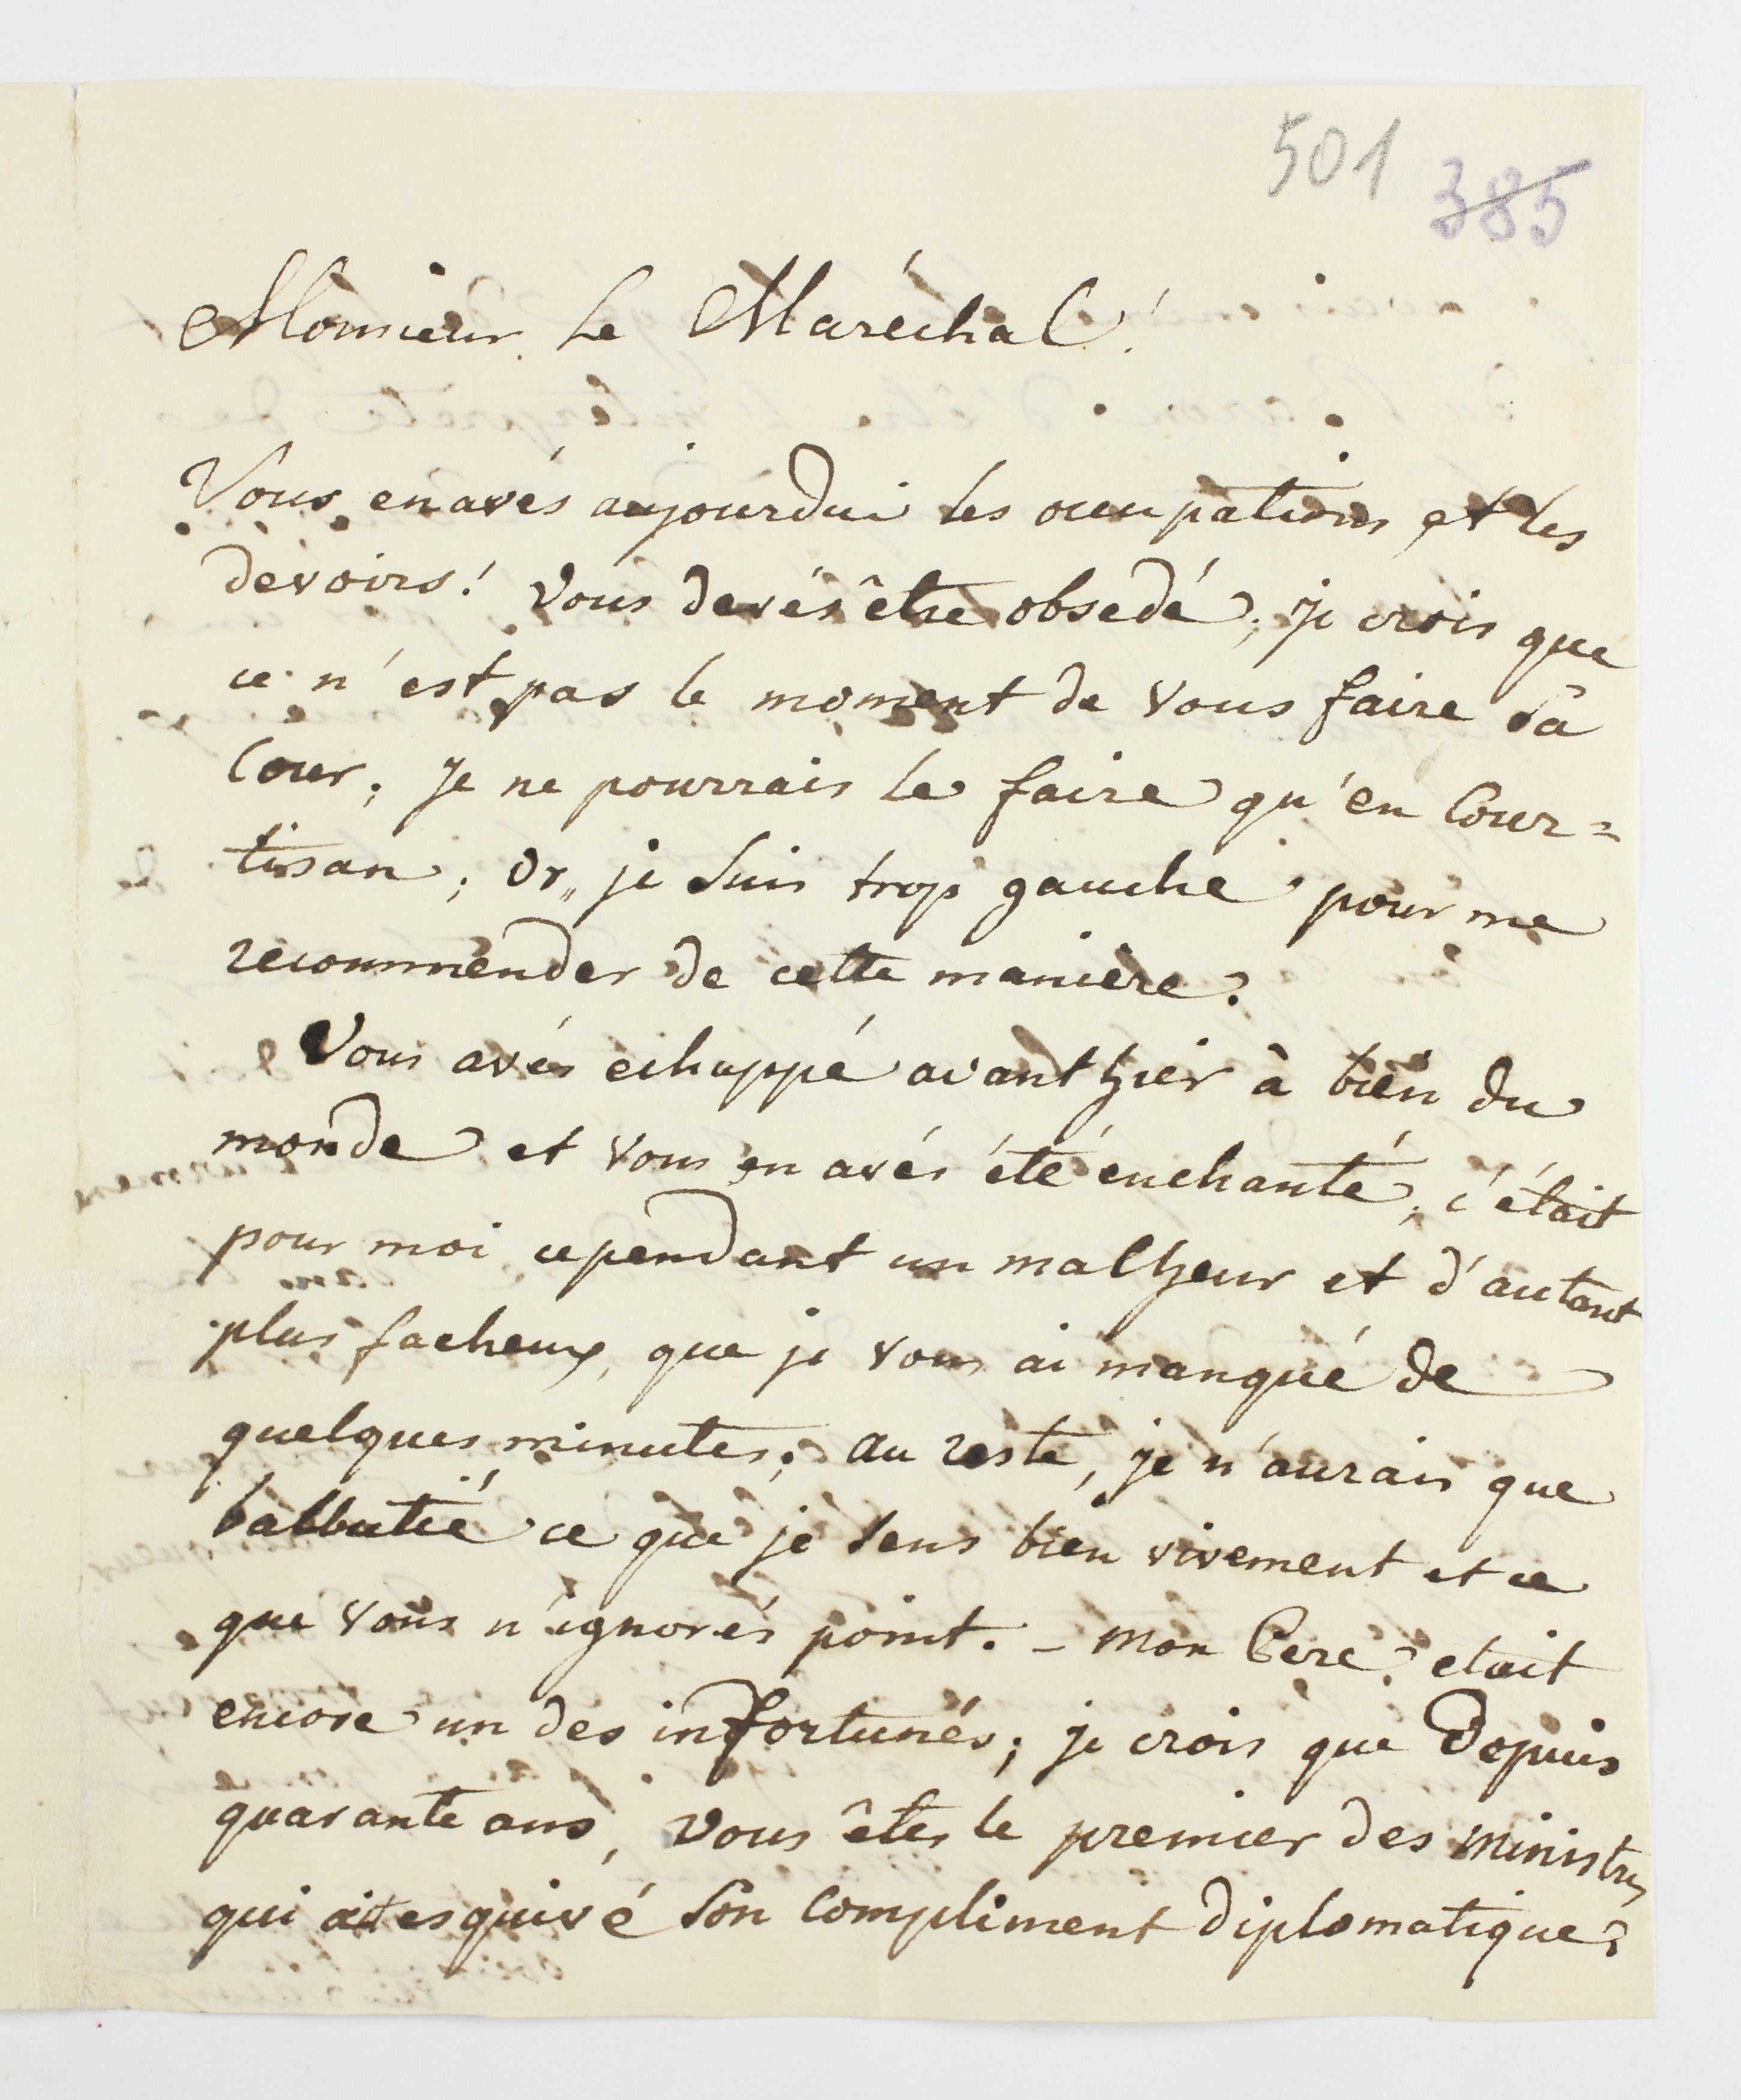 501
385
Monsieur le Maréchal!
Vous en avés aujourdui les occupations et les
devoirs! Vous devés être obsedé; je crois que
ce n'est pas le moment de vous faire sa
Cour; Je ne pourrais le faire qu'en Cour=
tisan; Or,, je suis trop gauche pour me
recommender de cette maniere.
Vous avés echappé avanthier à bien du
monde et vous en avés été enchanté; c'était
pour moi cependant un malheur et d'autant
plus facheux, que je vous ai manqué de
quelques minutes; au reste, je n'aurais que
balbutié ce que je sens bien vivement et ce
que vous n'ignorés point. - Mon Pere etait
encore un des infortunés; je crois que depuis
quarante ans, vous êtes le premier des Ministres
qui ait esquivé son compliment diplomatique.